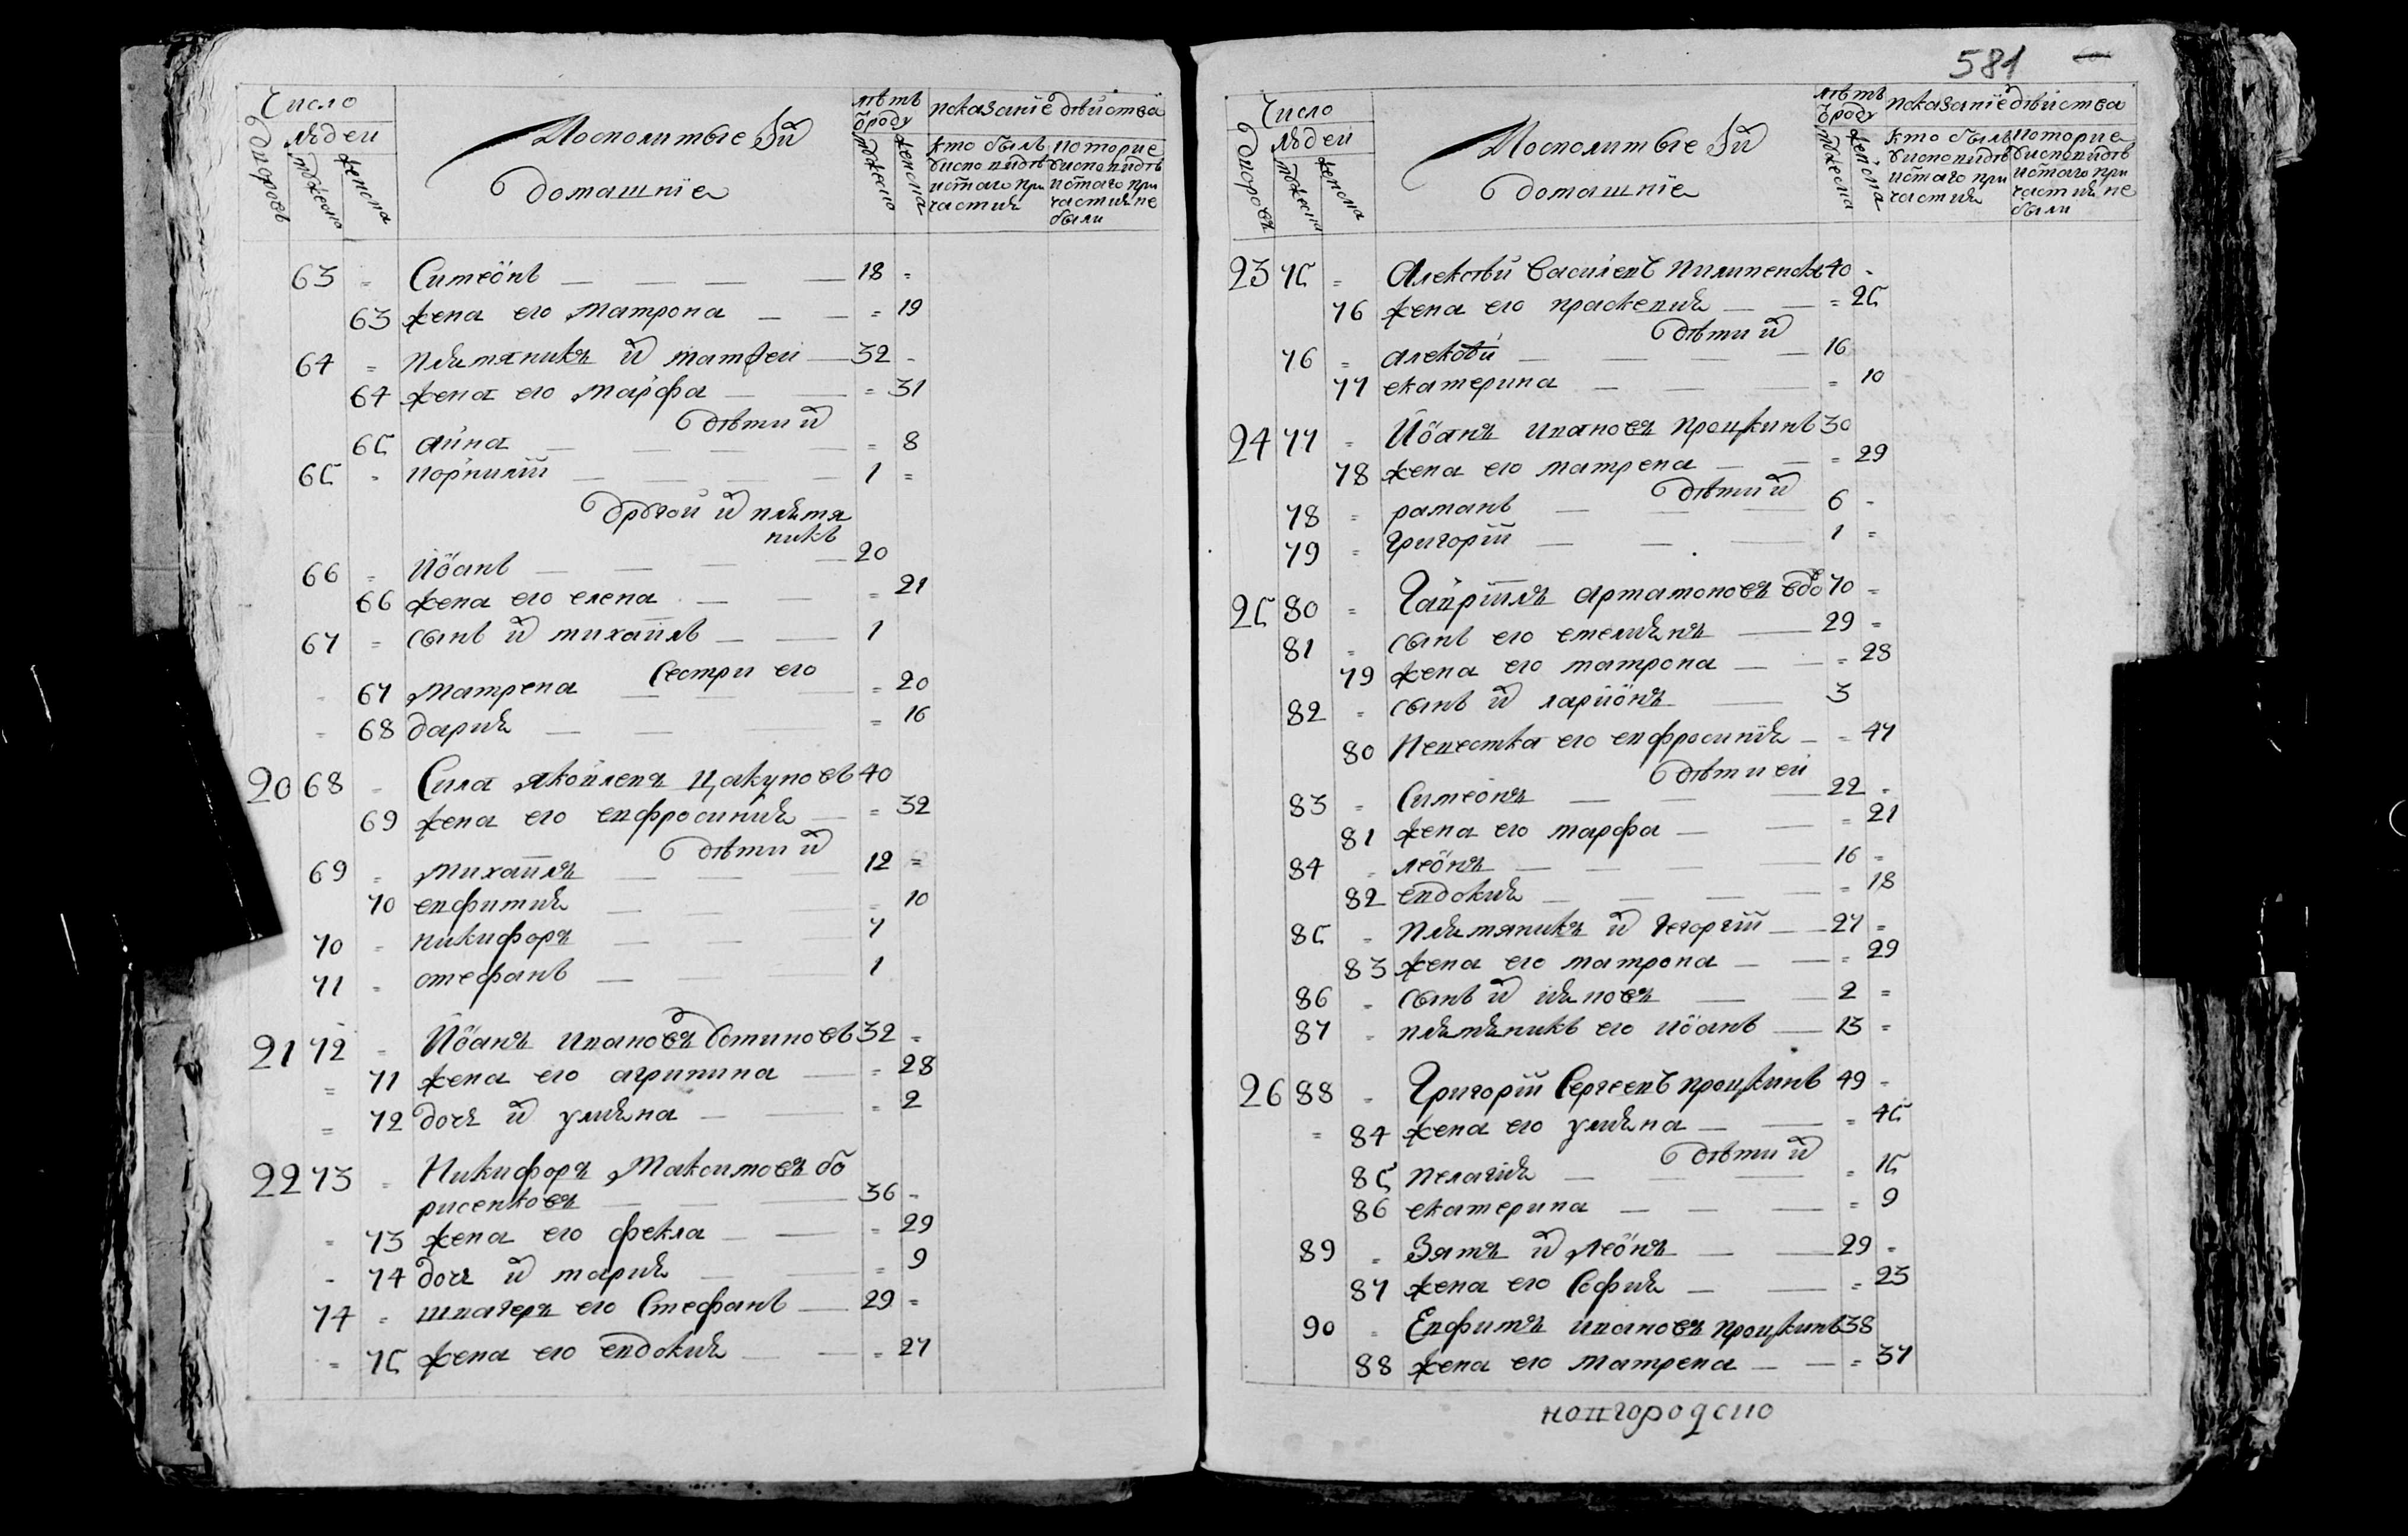 Число
людеи
дворовъ
мужеска
женска
Посполитые Ӏй
домашнїе
лѣтъ
ѿроду
мужеска
женска
показанїе дѣйства
кто былъ
ѹисповиди
истаго при
частия
которие
ѹисповиди
истаго при
частия не
были
63 = Симеонъ — 18 =
63 жена его Матрона — = 19
64 = племяникъ ӥ матѳеи — 32 =
64 жена его марфа — = 31
дѣти ӥ
65 анна — = 8
65 = корнилїй — 1 =
другои ӥ племя
никъ
66 = Иоанъ — 20
66 жена его елена — = 21
67 = сынъ ӥ михаилъ — 1
сестри его
67 матрена — = 20
= 68 дария — = 16
20 68 = Сила яковлевъ цакуновъ 40
69 жена его евфросиния — = 32
дѣти ӥ
69 = михаилъ — 12 =
70 евфимия — = 10
70 = никифоръ — 7
71 = стефанъ — 1
21 72 = Иоанъ ивановъ сотиновъ 32 =
= 71 жена его агрипина — = 28
= 72 дочъ ӥ улияна — = 2
22 73 = Никифоръ Максимовъ бо
рисенковъ — 36 =
= 73 жена его фекла — = 29
= 74 дочъ ӥ мария — = 9
74 = швагеръ его Стефанъ — 29 =
= 75 жена его евдокия — = 27
581
Число
людеи
дворовъ
мужеска
женска
Посполитые Ӏй
домашнїе
лѣтъ
ѿроду
мужеска
женска
показанїе дѣйства
кто былъ
ѹисповиди
истаго при
частия
которие
ѹисповиди
истаго при
частия не
были
23 75 = Алексѣй василевъ пилипенскъ 40 =
76 жена его праскевия — = 25
дѣти ӥ
76 = алексѣй — 16
77 екатерина — = 10
24 77 = Иоанъ ивановъ процкинъ 30
78 жена его матрена — = 29
дѣти ӥ
78 = раманъ — 6 =
79 = григорїй — 1 =
25 80 = Гаврїилъ артамоновъ вдо 70 =
81 = сынъ его емелиянъ — 29 =
79 жена его матрона — = 28
82 = сынъ ӥ ларионъ — 3
80 Невестка его евфросинїя — = 47
дѣти еи
83 = Симеонъ — 22 =
81 жена его марфа — = 21
84 = леонъ — 16 =
82 евдокия — = 18
85 = племяникъ ӥ георгїй — 27 =
83 жена его матрона — = 29
86 = сынъ ӥ ияковъ — 2 =
87 = племяникъ его иоанъ — 13 =
26 88 = Григорїй Сергеевъ процкинъ 49 =
= 84 жена его улияна — = 45
дѣти ӥ
85 пелагия — = 15
86 екатерина — = 9
89 = Зятъ ӥ леонъ — 29 =
87 жена его София — = 23
90 = Евфимъ ивановъ процкинъ 38
88 жена его матрена — = 37